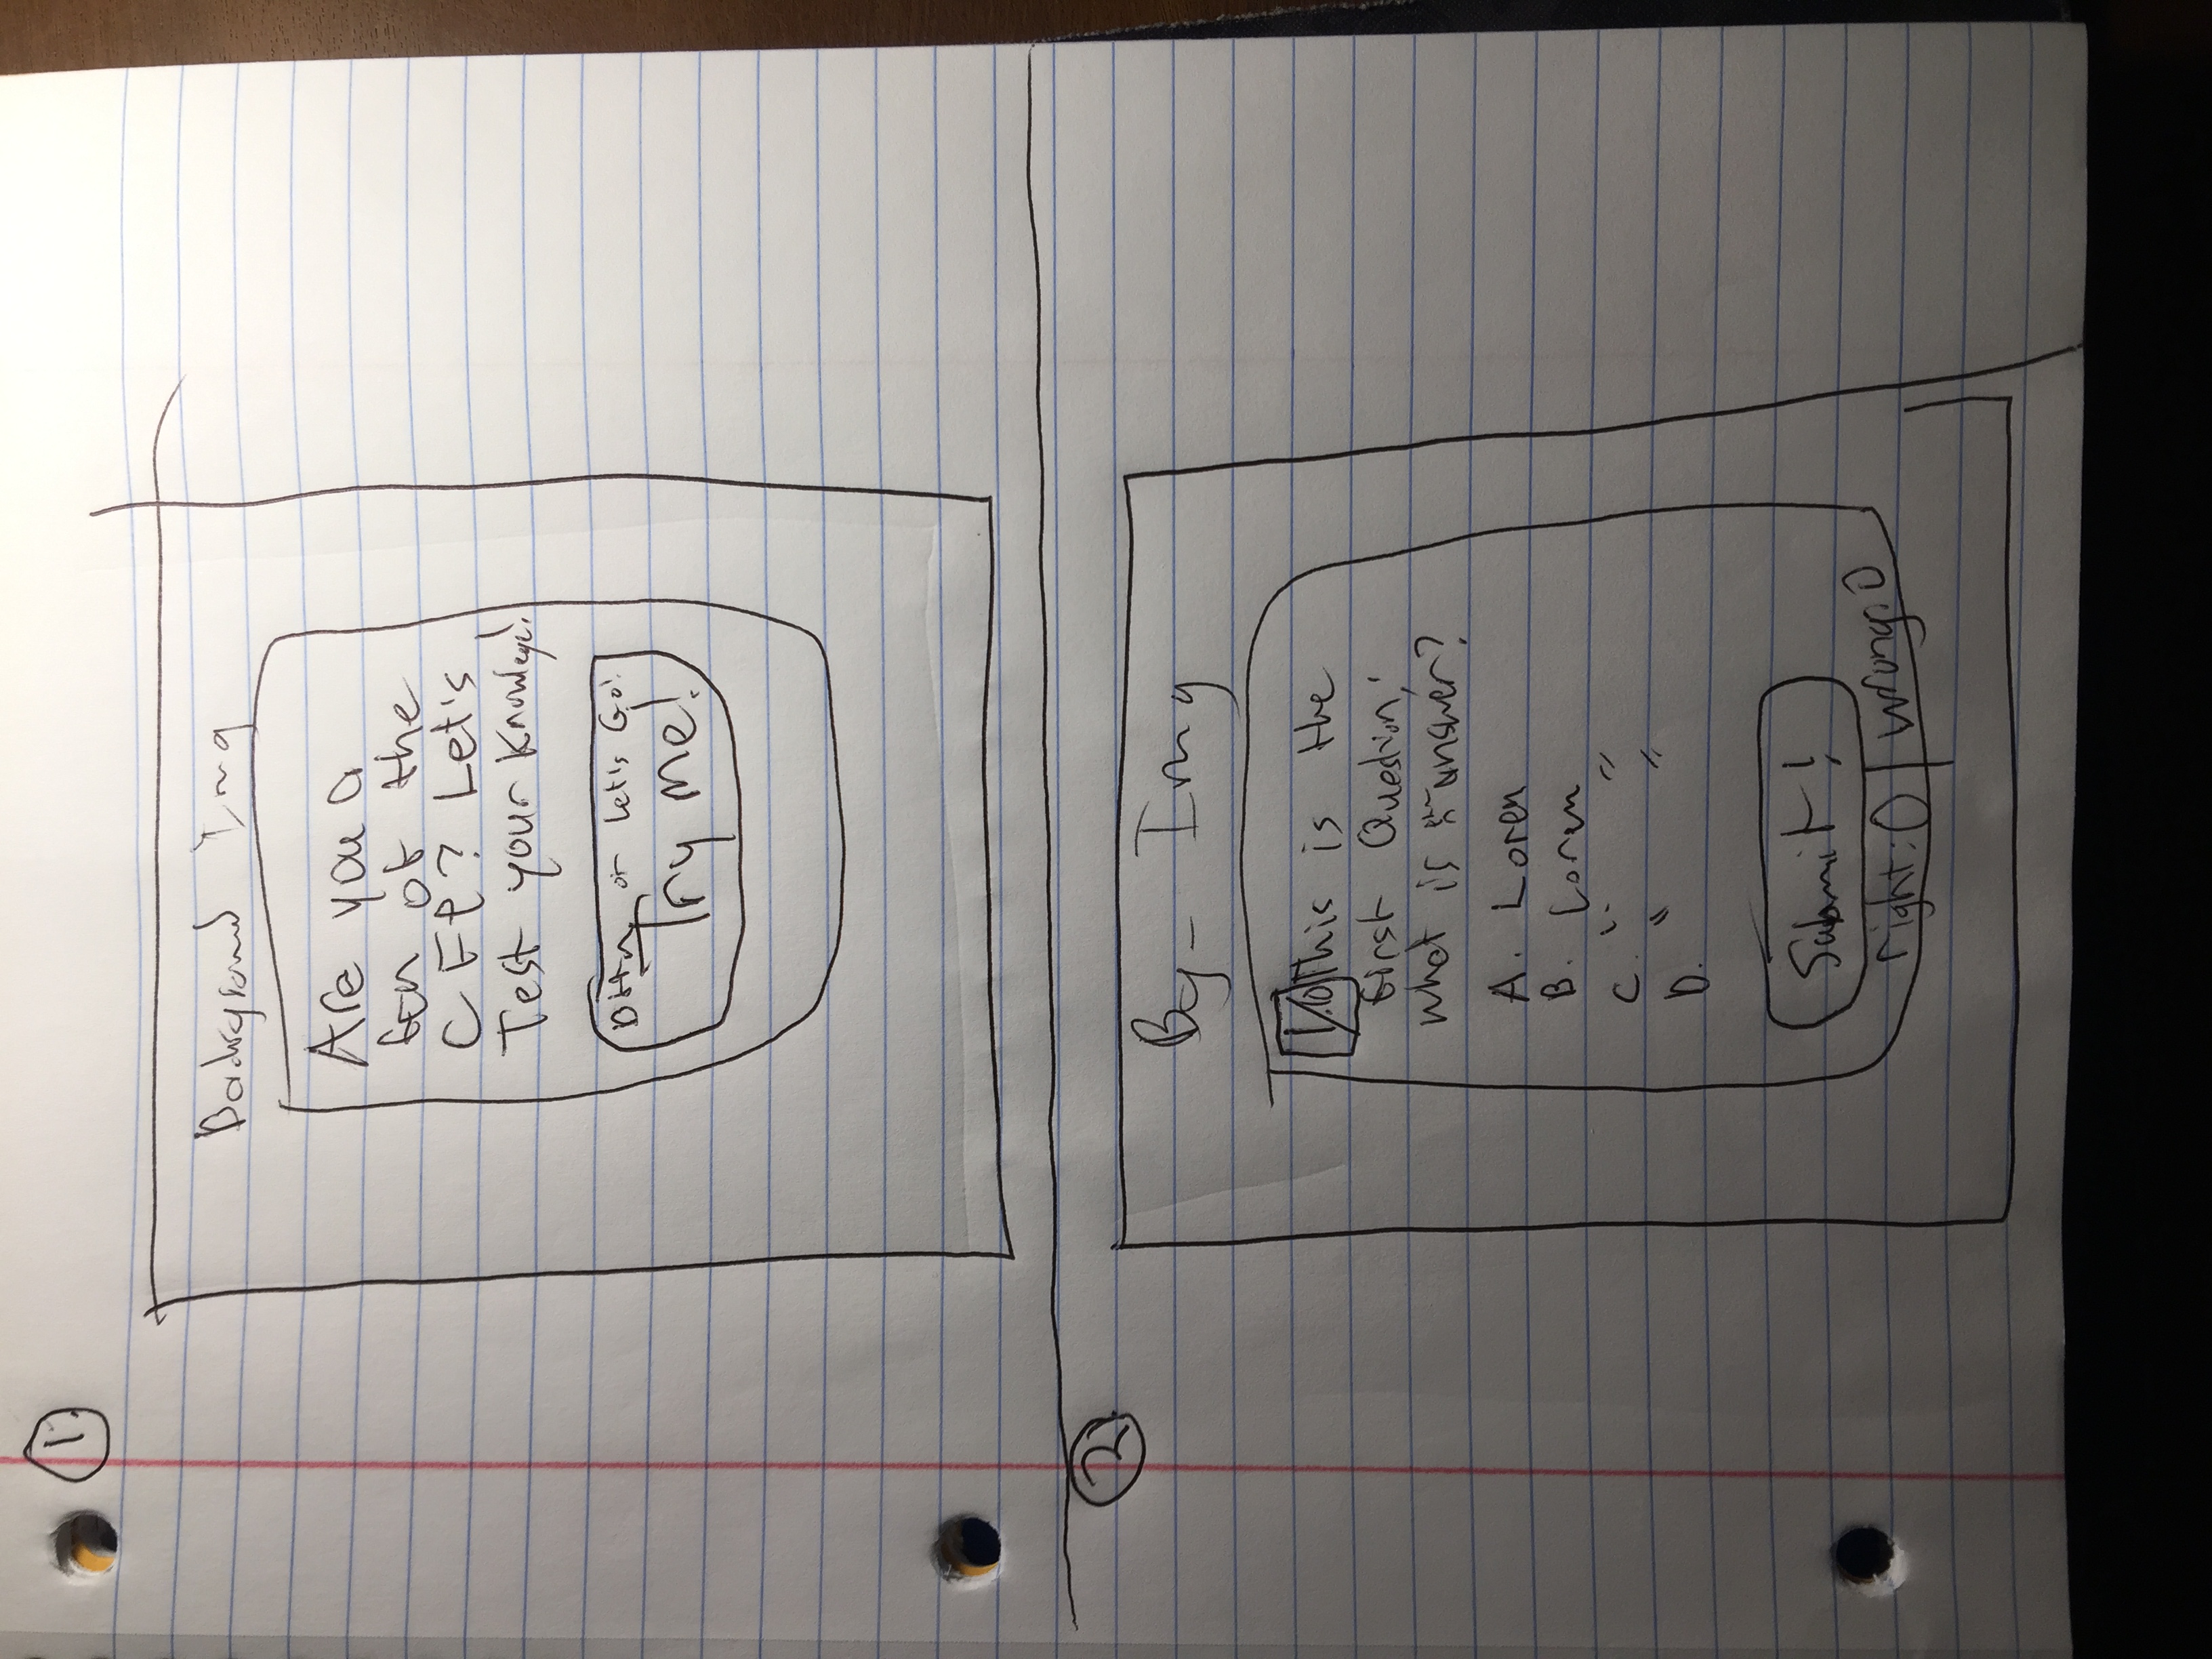 1.
Background Img
Are you a
fan of the
CFP? Let's
Test your Knowlege!
Bttn or Let's Go!
Try me!
2.
Bg- Img
1/10 This is the
first Question,
what is the answer?
A. Lorem
B. Lorem
C. " "
D. " "
Submit!
right: 0 | wrong: 0